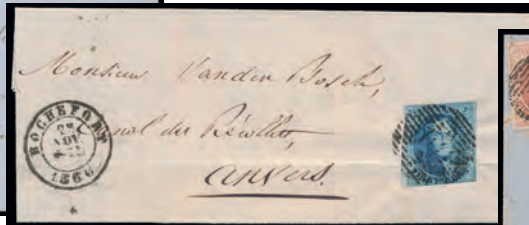 Monsieur Vanden Bosch,
des Récollets,
Anvers.
ROCHEFORT
1860